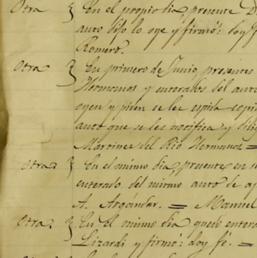 Otra } En el propio dia, presente D
auto dijo lo oye y firmó: doy f
Romero.
Otra } En primero de Junio, presentes
Hermenos y enterados del auto
oyen y piden se les espida copia
auto que se les notifica y
Martinez del Rio Hermanos =
Otra } En el mismo dia, presentes en s
enterado del mismo auto de
A. Arocindar. = Manuel
Otra } En el mismo dia quedó entera
Lizardi y firmó: doy fé. =